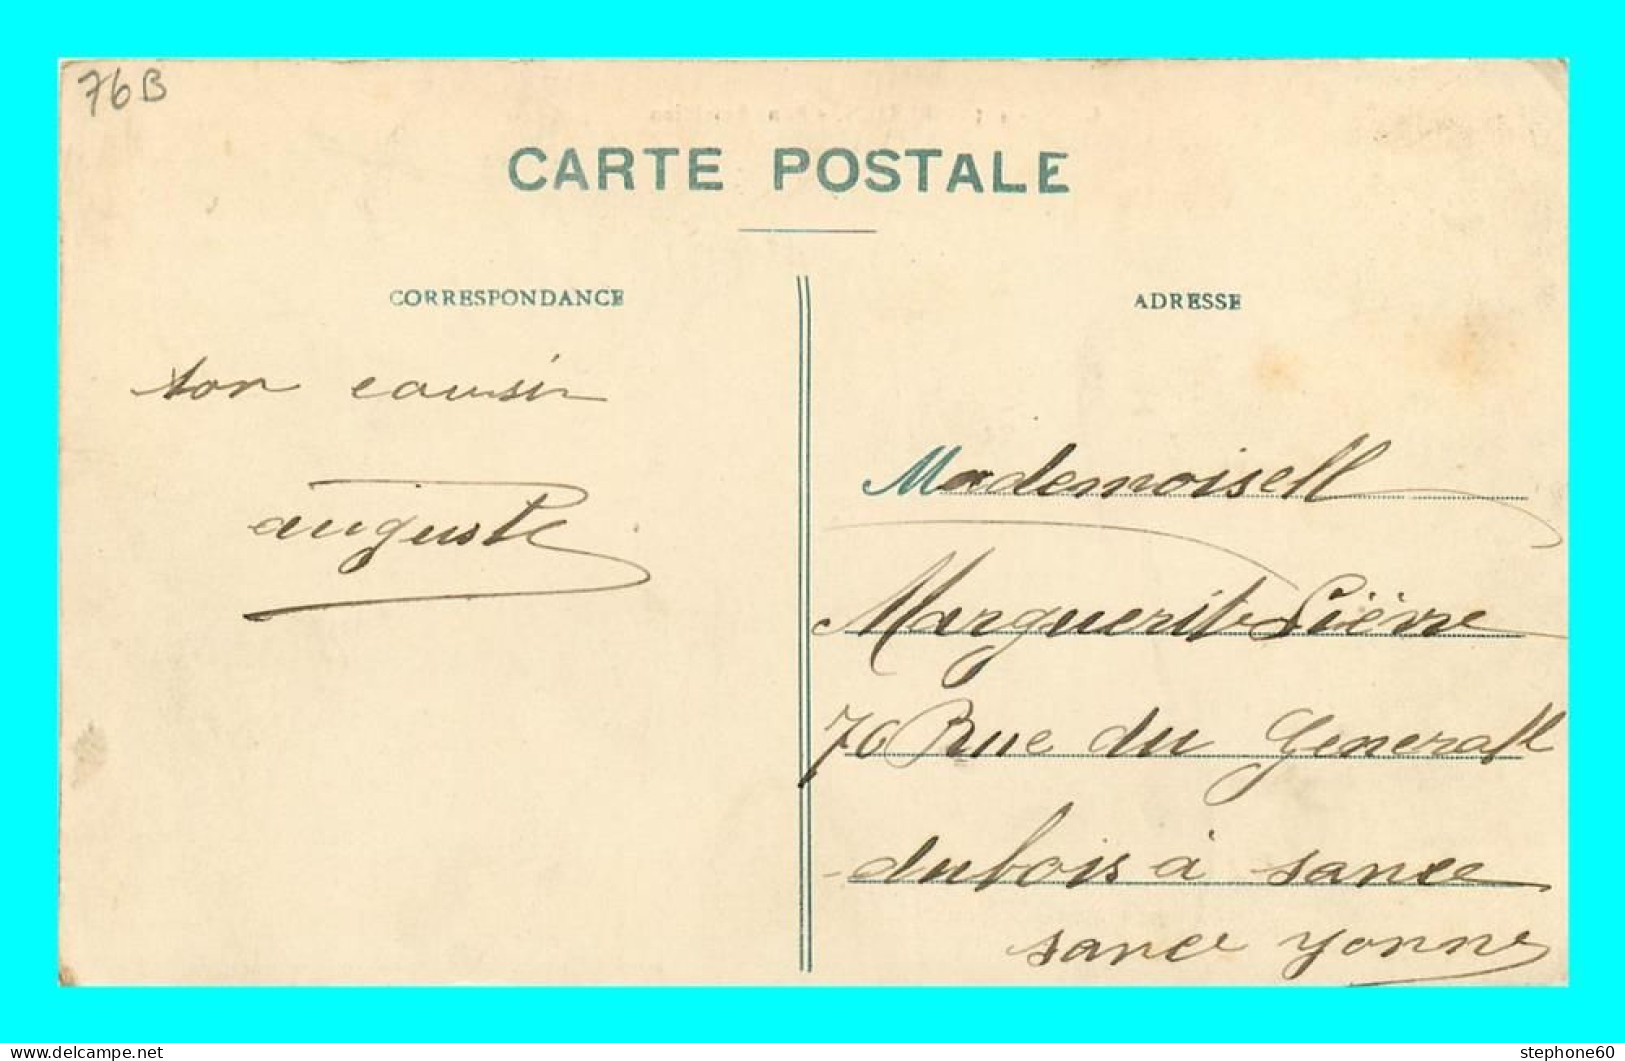 76B
CARTE POSTALE
CORRESPONDANCE
ADRESSE
ton cousin
auguste
Mademoisell
Marguerite Lièvre
76 Rue du Generall
dubois à sance
sance yonne
stephone60